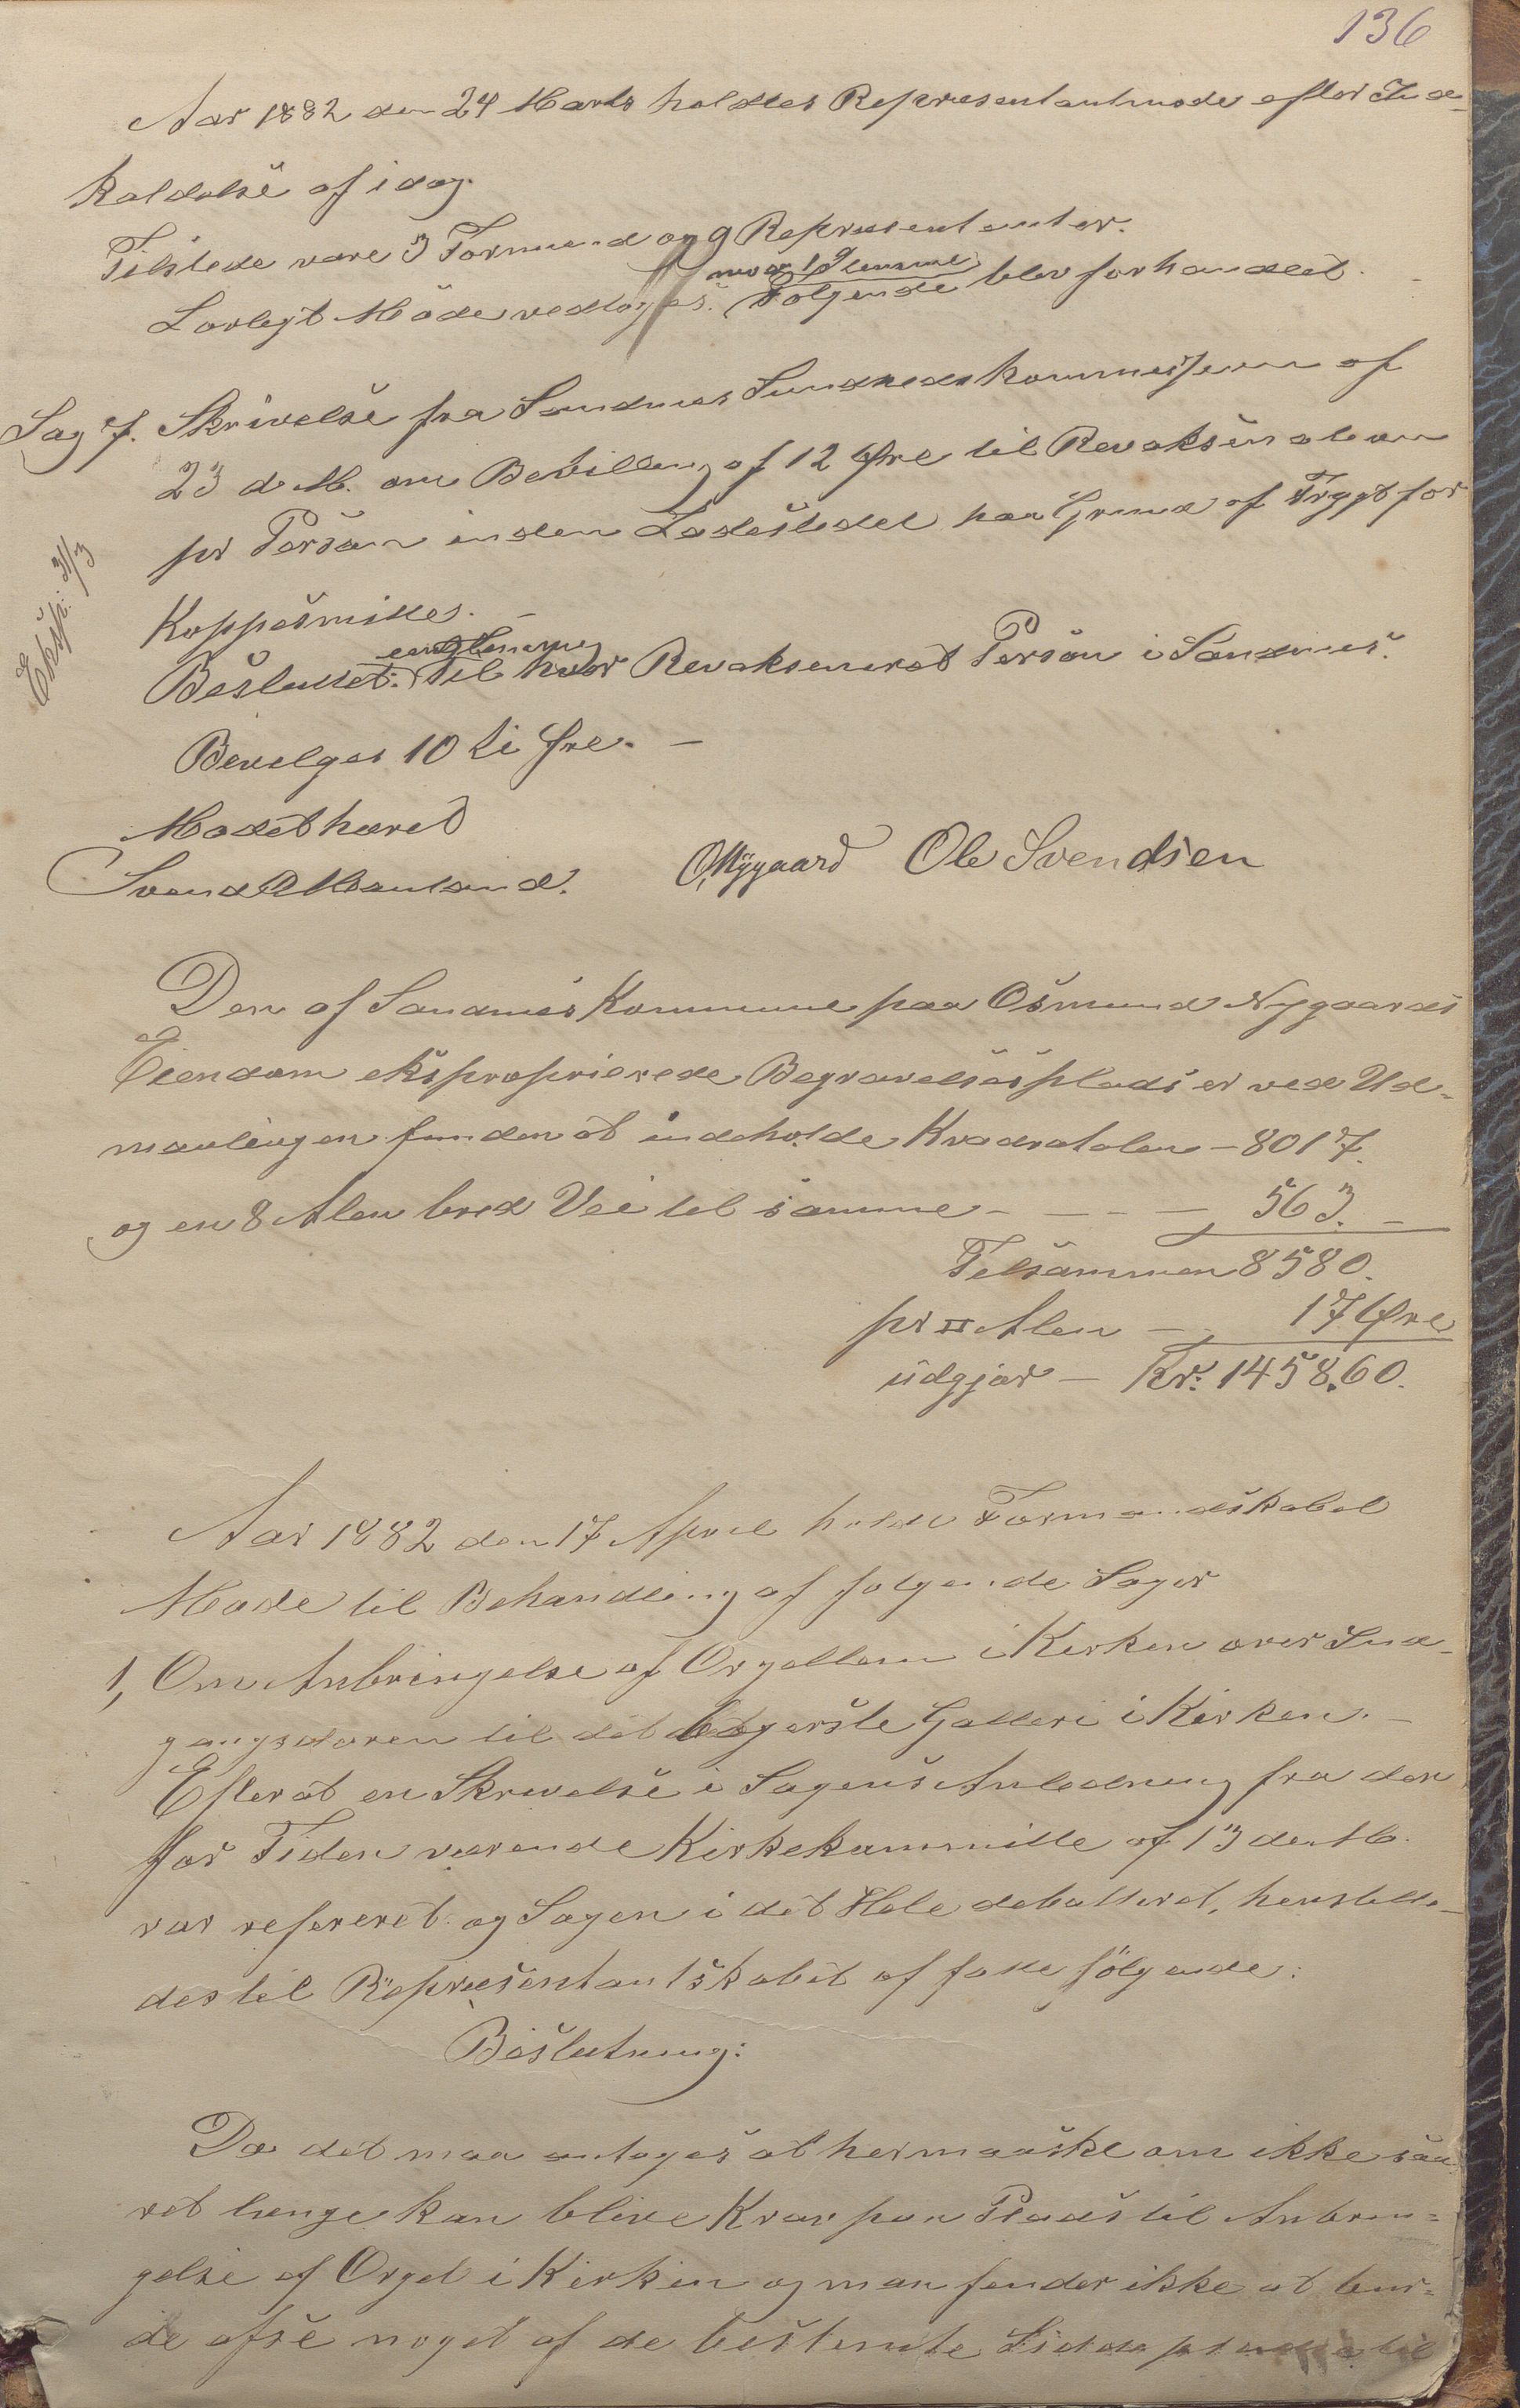 136
Aar 1882 den 24 Marts holdtes Representantmøde efter Ind-
kaldelse af idag.
Tilstede vare 3 Formænd og 9 Representanter.
Lovligt Møde vedtoges. Følgende blev forhandlet.
mod 1 Stemme
Sag 1. Skrivelse fra Sandnes Sundhedskommission af
23 d. M. om Bevilling af 12 Øre til Revaksination
pr Person inden Ladestedet paa Grund af Frygt for
Koppesmitte. –
Eksp: 31/3
eenstemmig
Besluttet: Til hver Revaksineret Person i Sandnes.
Bevilges 10 ti Øre. –
Mødet hævet
Svend Mauland. O, Nygaard Ole Svendsen
Den af Sandnes Kommune paa Osmund Nygaards
Eiendom eksproprierede Begravelsesplads er ved Ud-
maalingen funden at indeholde Kvadratalen – 8017.
og en 8 Alen bred Vei til samme – – – – 563. –
Tilsammen 8580.
pr □ Alen – 17 Øre
udgjør – Kr: 1458.60.
Aar 1882 den 17 April holdt Formandskabet
Møde til Behandling af følgende Sager
1, Om Anbringelse af Orgellem i Kirken over Ind-
gangsdøren til det bagerste Galleri i Kirken. –
Efterat en Skrivelse i Sagens Anledning fra den
for Tiden værende Kirkekommitte af 13 de M.
var refereret og Sagen i det Hele debatteret, henstille-
des til Repræsentantskabet at fatte følgende:
Beslutning:
Da det maa antages at her maaske om ikke saa
ret længe kan blive Krav paa Plads til Anbrin-
gelse af Orgel i Kirken og man finder ikke at bur-
de afse noget af de bestemte Siddepladse til